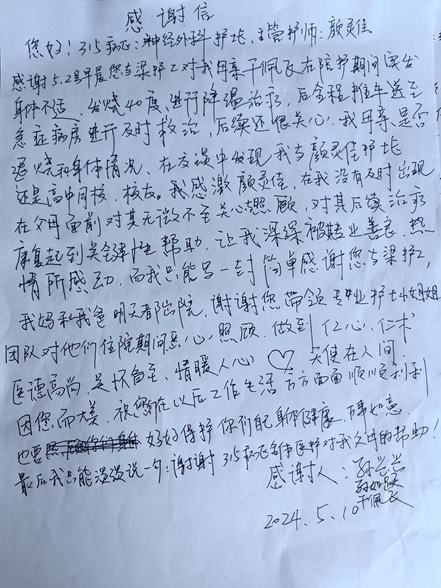 感谢信
您好！315病区：神经外科护长、主管护师：颜灵佳
感谢5.2号早晨您与梁护工对我母亲于佩飞在陪护期间突发
身体不适，发烧40度，进行降温治疗，后全程推车送至
急症病房进行及时救治，后续还很关心我母亲是否
退烧和身体情况、在交谈中发现我与颜灵佳护长
还是高中同校、校友。我感激颜灵佳，在我没有及时出现
在父母面前对其无微不至关心照顾，对其后续治疗
康复起到关键性帮助，让我深深被专业善良、热
情所感动，而我只能写一封简单感谢您与梁护工，
我妈和我爸明天看出院，谢谢您带领专业护士小姐姐
团队对他们住院期间悉心照顾，做到仁心、仁术
医德高尚、关怀备至、情暖人心♡天使在人间
因您而美，祝您在以后工作生活方方面面顺顺利利
也要 好好保护你们自己身体健康，万事如意
最后我只能深深说一句：谢谢315病区各位医护对我父母的帮助！
感谢人：
于佩飞
2024.5.10